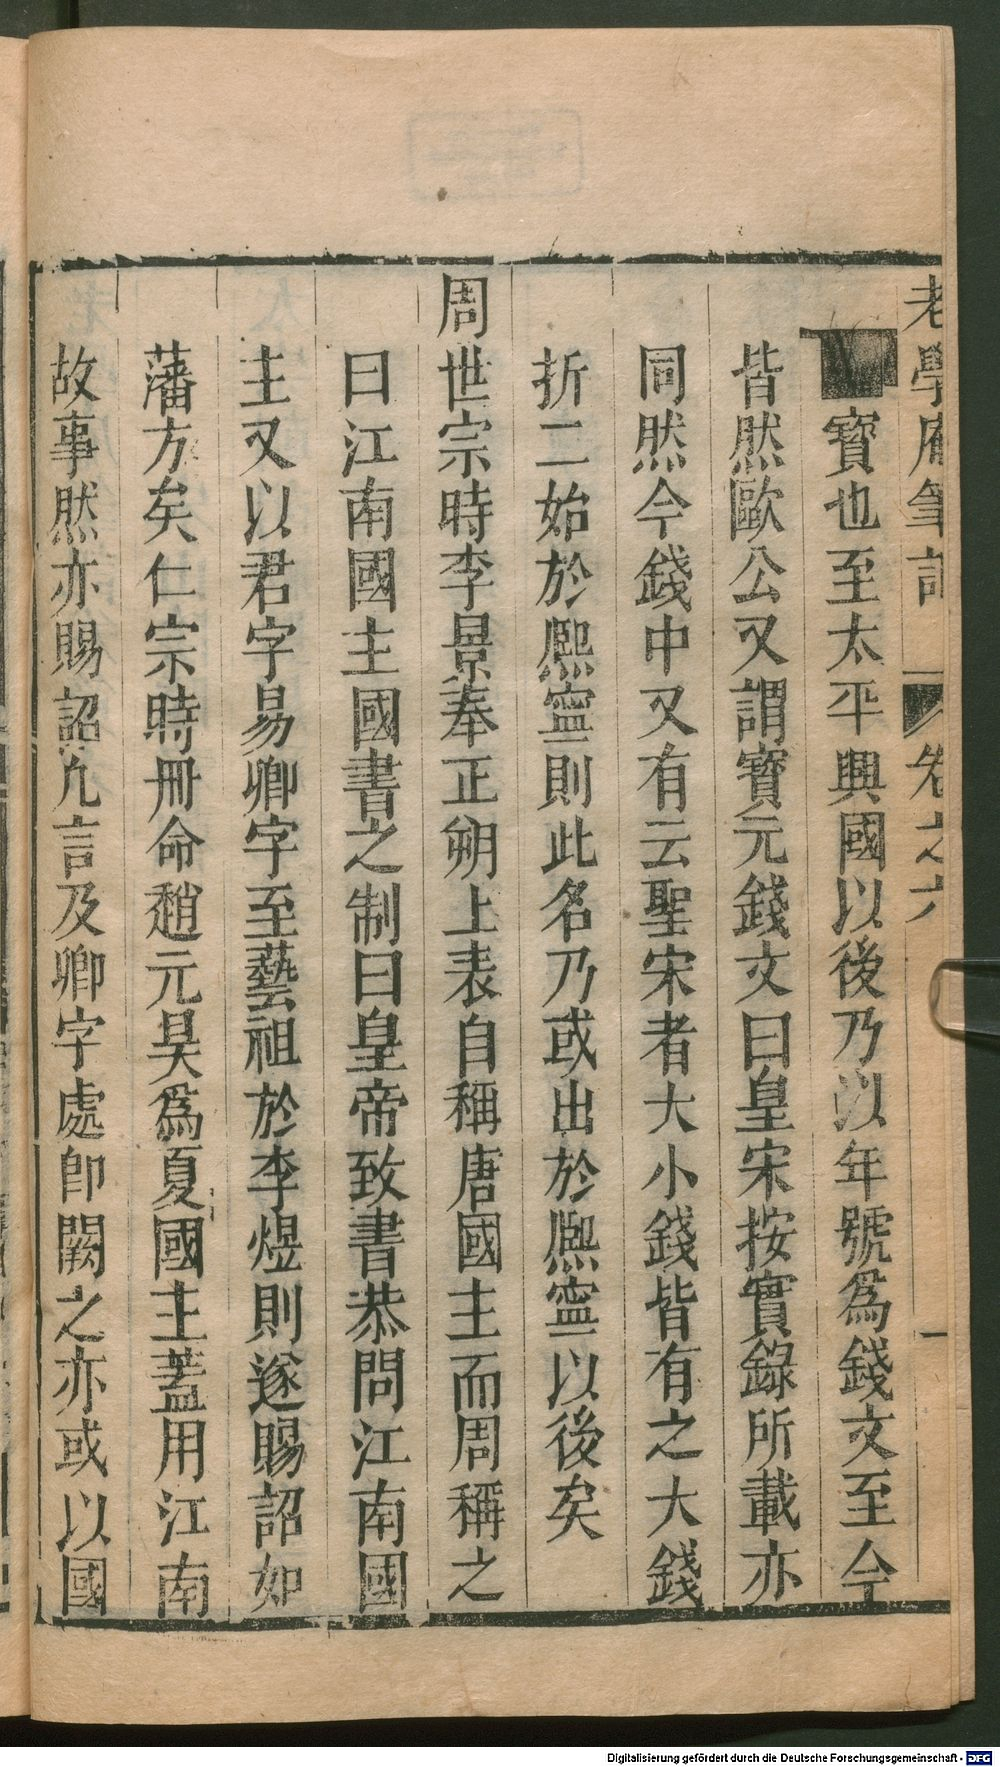 老學庵筆記 卷之六 一
寳也至太平興國以後乃以年號爲錢文至今
皆然歐公又謂寳元錢文曰皇宋按實錄所載亦
同然今錢中又有云聖宋者大小錢皆有之大錢
折二始於熈寧則此名乃或出於熈寧以後矣
周世宗時李景奉正朔上表自稱唐國主而周稱之
曰江南國主國書之制曰皇帝致書恭問江南國
主又以君字易卿字至藝祖於李煜則遂賜詔如
藩方矣仁宗時冊命趙元昊爲夏國主蓋用江南
故事然亦賜詔凢言及卿字處卽闕之亦或以國
Digitalisierung gefördert durch die Deutsche Forschungsgemeinschaft - DFG